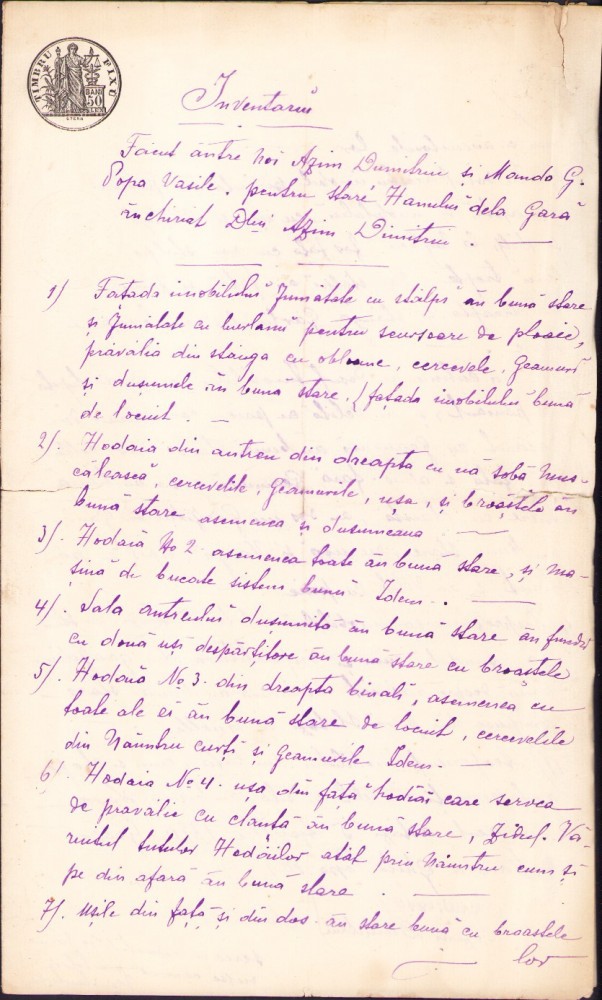 TIMBRU FIXU
BANI
50
Inventariu
Facut ântre noi Azim Dumitriu și Manda G.
Popa Vasile. pentru stare Hanului dela Gară
ânchiriat Dlui Azim Dimitriu. —
1) Fațada imobilului Jumătate cu stâlpi ân bună stare
și Jumătate cu burlanu pentru scursoare de ploaie,
prăvălia din stânga cu obloane, cercevele, Geamuri
și dușumele ân bună stare, fațada imobilului bună
de locuit. —
2). Hodaia din antreu din dreapta cu uă sobă mus-
călească, cercevelile, Geamurile, ușa, și broaștele ân
bună stare asemenea și dușumeaua —
3). Hodaiă No 2 asemenea toate ân bună stare, și ma-
șină de bucate sistem bună Idem. —
4). Sala antreului dușumita ân bună stare ân fundu
cu două uși despărțitore ân bună stare cu broaștele
5). Hodaiă No 3. din dreapta binali, asemenea cu
toate ale ei ân bună stare de locuit, cercevelile
din nâuntru curți și Geamurile Idem. —
6). Hodaia No 4. ușa din față hodăi care servea
de prăvălie cu clanță ân bună stare, Zidul. Vă-
ruitul tutulor Hodăilor atât prin nâuntru cum și
pe din afară ân bună stare. —
7). Ușile din față și din dos ân stare bună cu broastele
lor